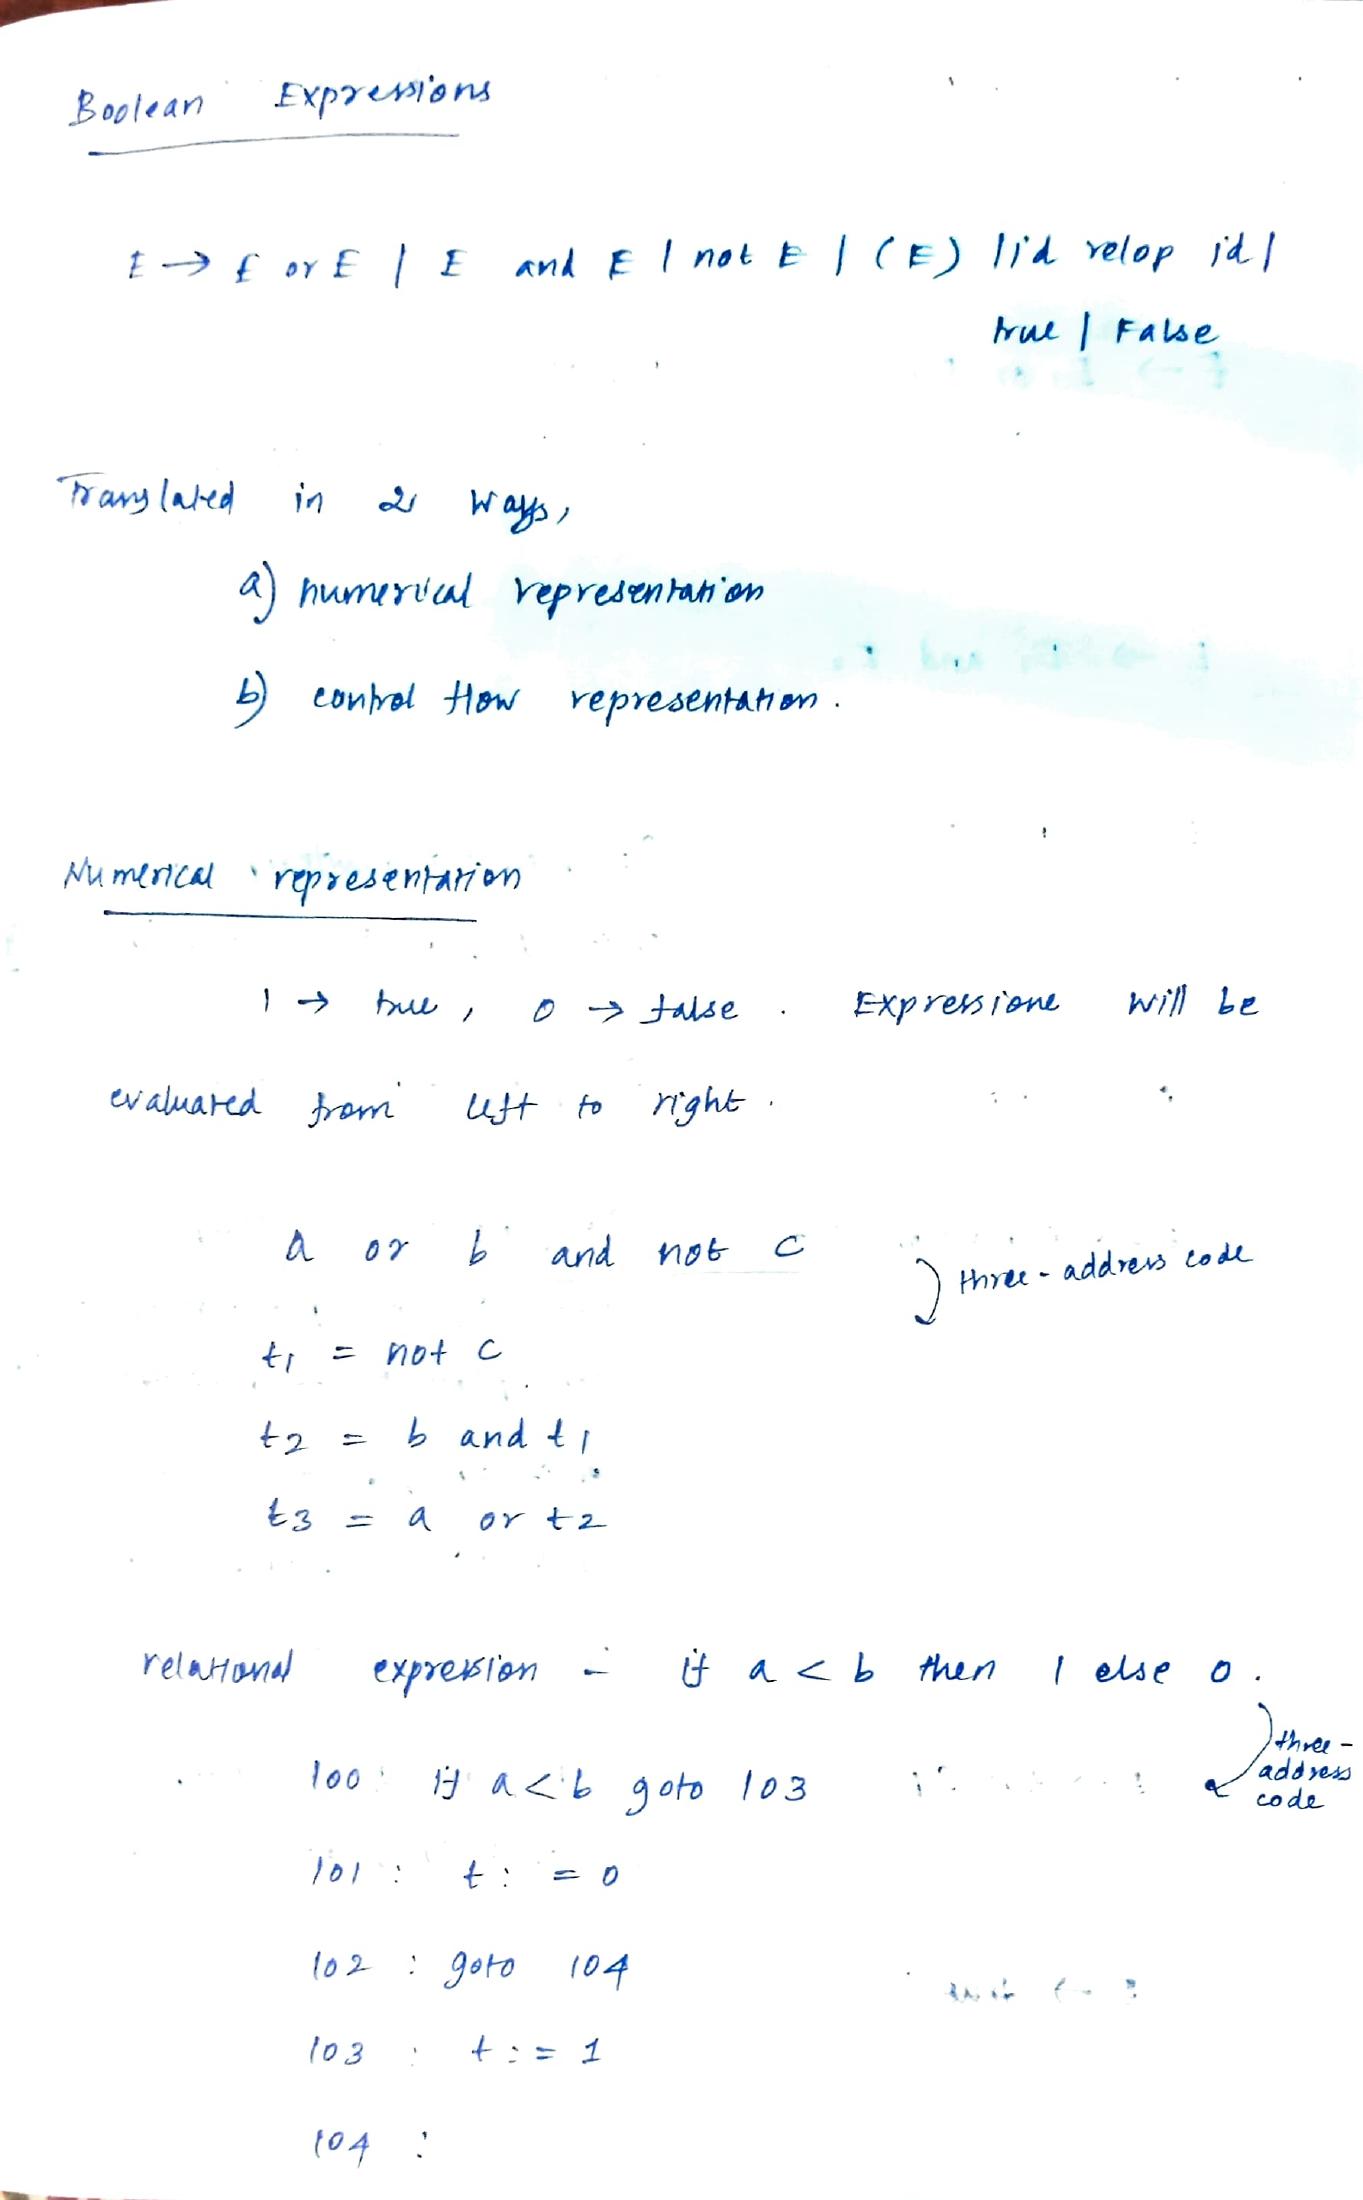 Boolean Expressions
E → E or E | E and E | not E | (E) | id relop id |
true | False
Translated in 2 ways,
a) numerical representation
b) control flow representation.
Numerical representation
1 → true, 0 → false. Expressions will be
evaluated from left to right.
a or b and not c
three-address code
t1 = not c
t2 = b and t1
t3 = a or t2
relational expression - if a < b then 1 else 0.
three-
address
code
100 : if a < b goto 103
101 : t := 0
102 : goto 104
103 : t := 1
104 :